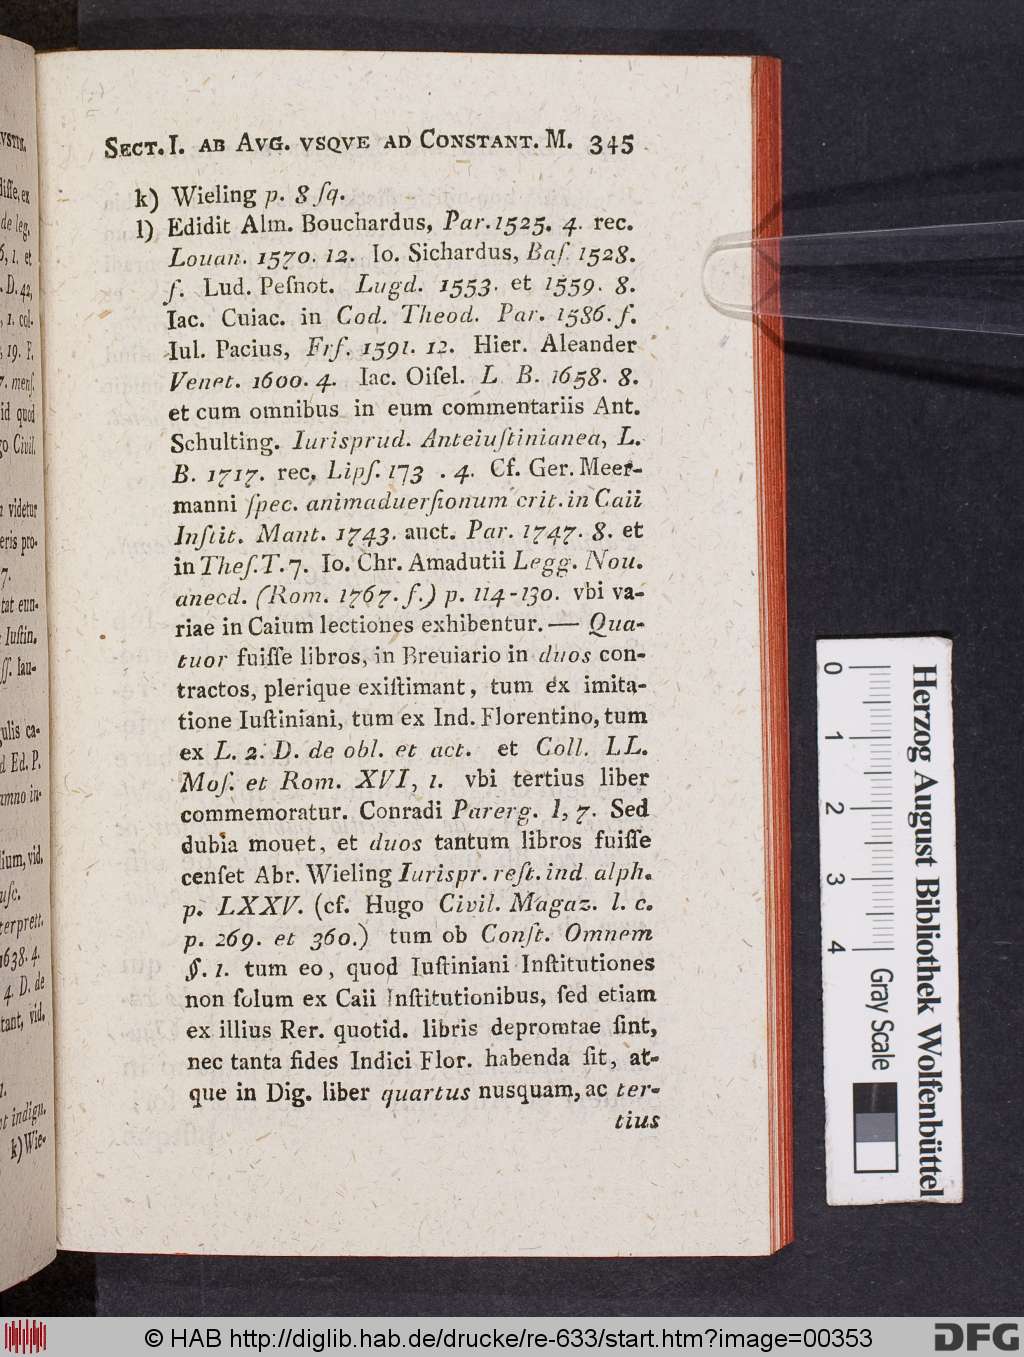 SECT. I. AB AVG. VSQVE AD CONSTANT. M. 345
k) Wieling p. 8 ſq.
l) Edidit Alm. Bouchardus, Par. 1525. 4. rec.
Louan. 1570. 12. Io. Sichardus, Baſ. 1528.
f. Lud. Peſnot. Lugd. 1553. et 1559. 8.
Iac. Cuiac. in Cod. Theod. Par. 1586. f.
Iul. Pacius, Frf. 1591. 12. Hier. Aleander
Venet. 1600. 4. Iac. Oiſel. L B. 1658. 8.
et cum omnibus in eum commentariis Ant.
Schulting. Iurisprud. Anteiuſtinianea, L.
B. 1717. rec. Lipſ. 173 . 4. Cf. Ger. Meer-
manni ſpec. animaduerſionum crit. in Caii
Inſtit. Mant. 1743. auct. Par. 1747. 8. et
in Theſ. T. 7. Io. Chr. Amadutii Legg. Nou.
anecd. (Rom. 1767. f.) p. 114-130. vbi va-
riae in Caium lectiones exhibentur. — Qua-
tuor fuiſſe libros, in Breuiario in duos con-
tractos, plerique exiſtimant, tum ex imita-
tione Iuſtiniani, tum ex Ind. Florentino, tum
ex L. 2. D. de obl. et act. et Coll. LL.
Moſ. et Rom. XVI, 1. vbi tertius liber
commemoratur. Conradi Parerg. 1, 7. Sed
dubia mouet, et duos tantum libros fuiſſe
cenſet Abr. Wieling Iurispr. reſt. ind alph.
p. LXXV. (cf. Hugo Civil. Magaz. l. c.
p. 269. et 360.) tum ob Conſt. Omnem
§. 1. tum eo, quod Iuſtiniani Inſtitutiones
non ſolum ex Caii Inſtitutionibus, ſed etiam
ex illius Rer. quotid. libris depromtae ſint,
nec tanta fides Indici Flor. habenda ſit, at-
que in Dig. liber quartus nusquam, ac ter-
tius
diſſe, ex
de leg.
D. 42,
1. col.
19. F.
7. menſ.
id quod
Civil.
videtur
eris pro-
7.
tat eun-
Iuſtin.
Iau-
gulis ca-
d Ed. P.
lium, vid.
terprett.
1638. 4.
4. D. de
tant, vid.
indign.
k) Wie-
0 1 2 3 4
Gray Scale
Herzog August Bibliothek Wolfenbüttel
© HAB http://diglib.hab.de/drucke/re-633/start.htm?image=00353
DFG